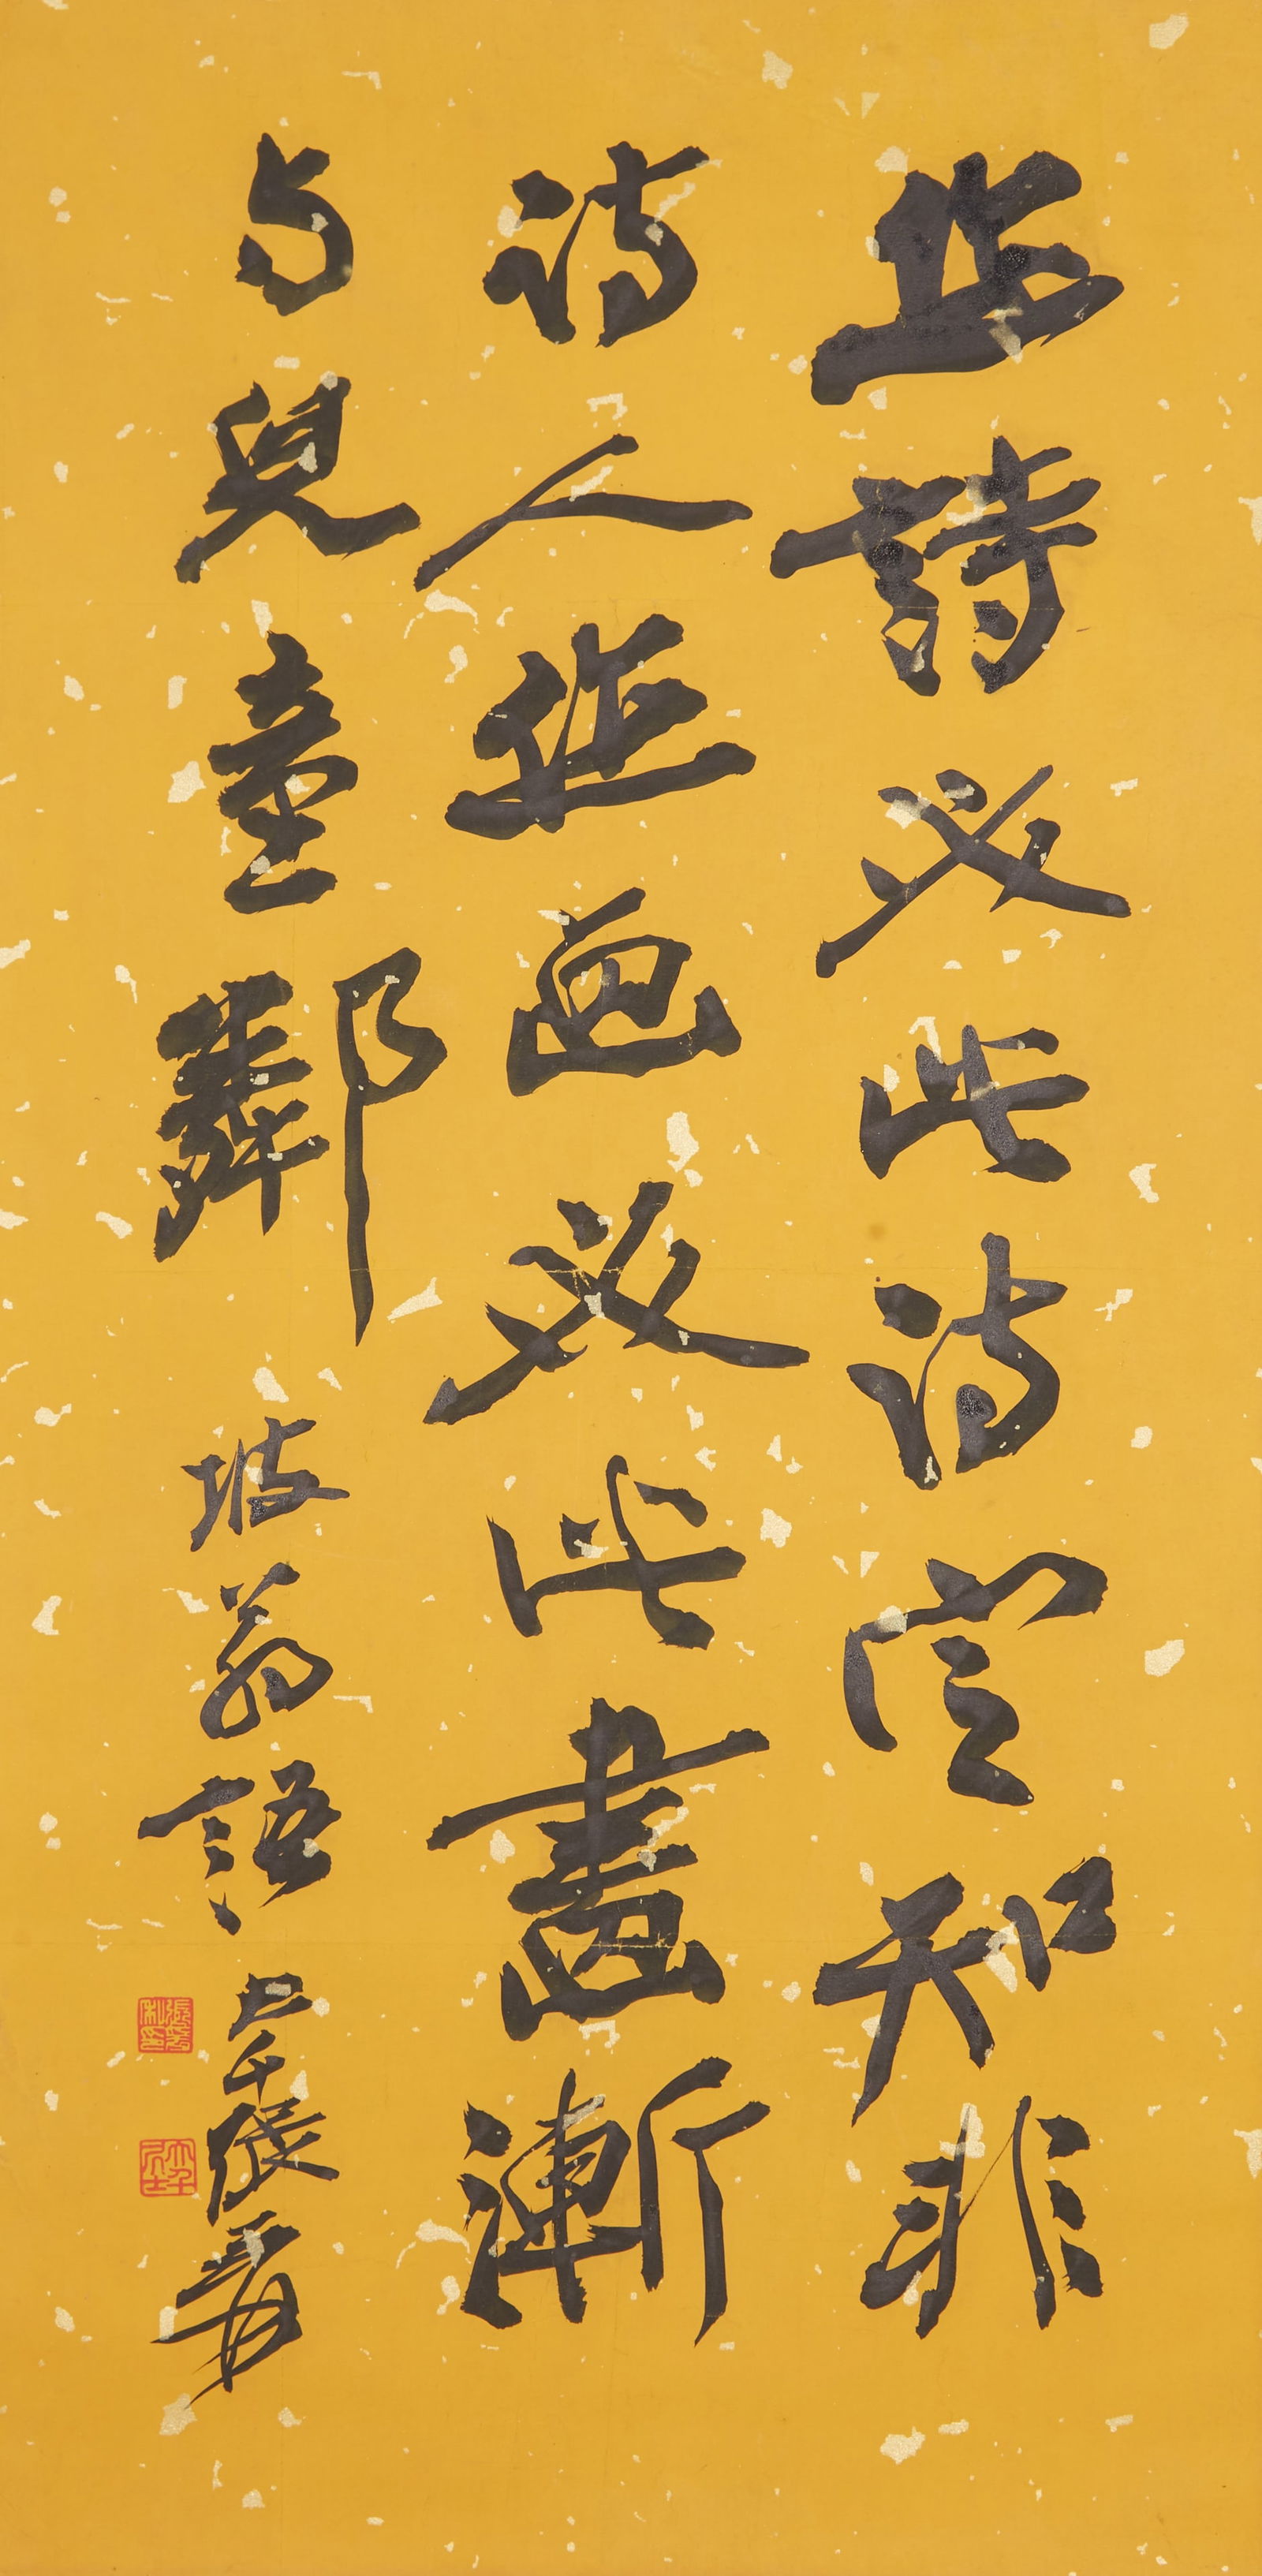 作詩必此詩定知非
詩人作画必此畫漸
与兒童鄰 坡翁語 張爰
張爰私印
大千居士